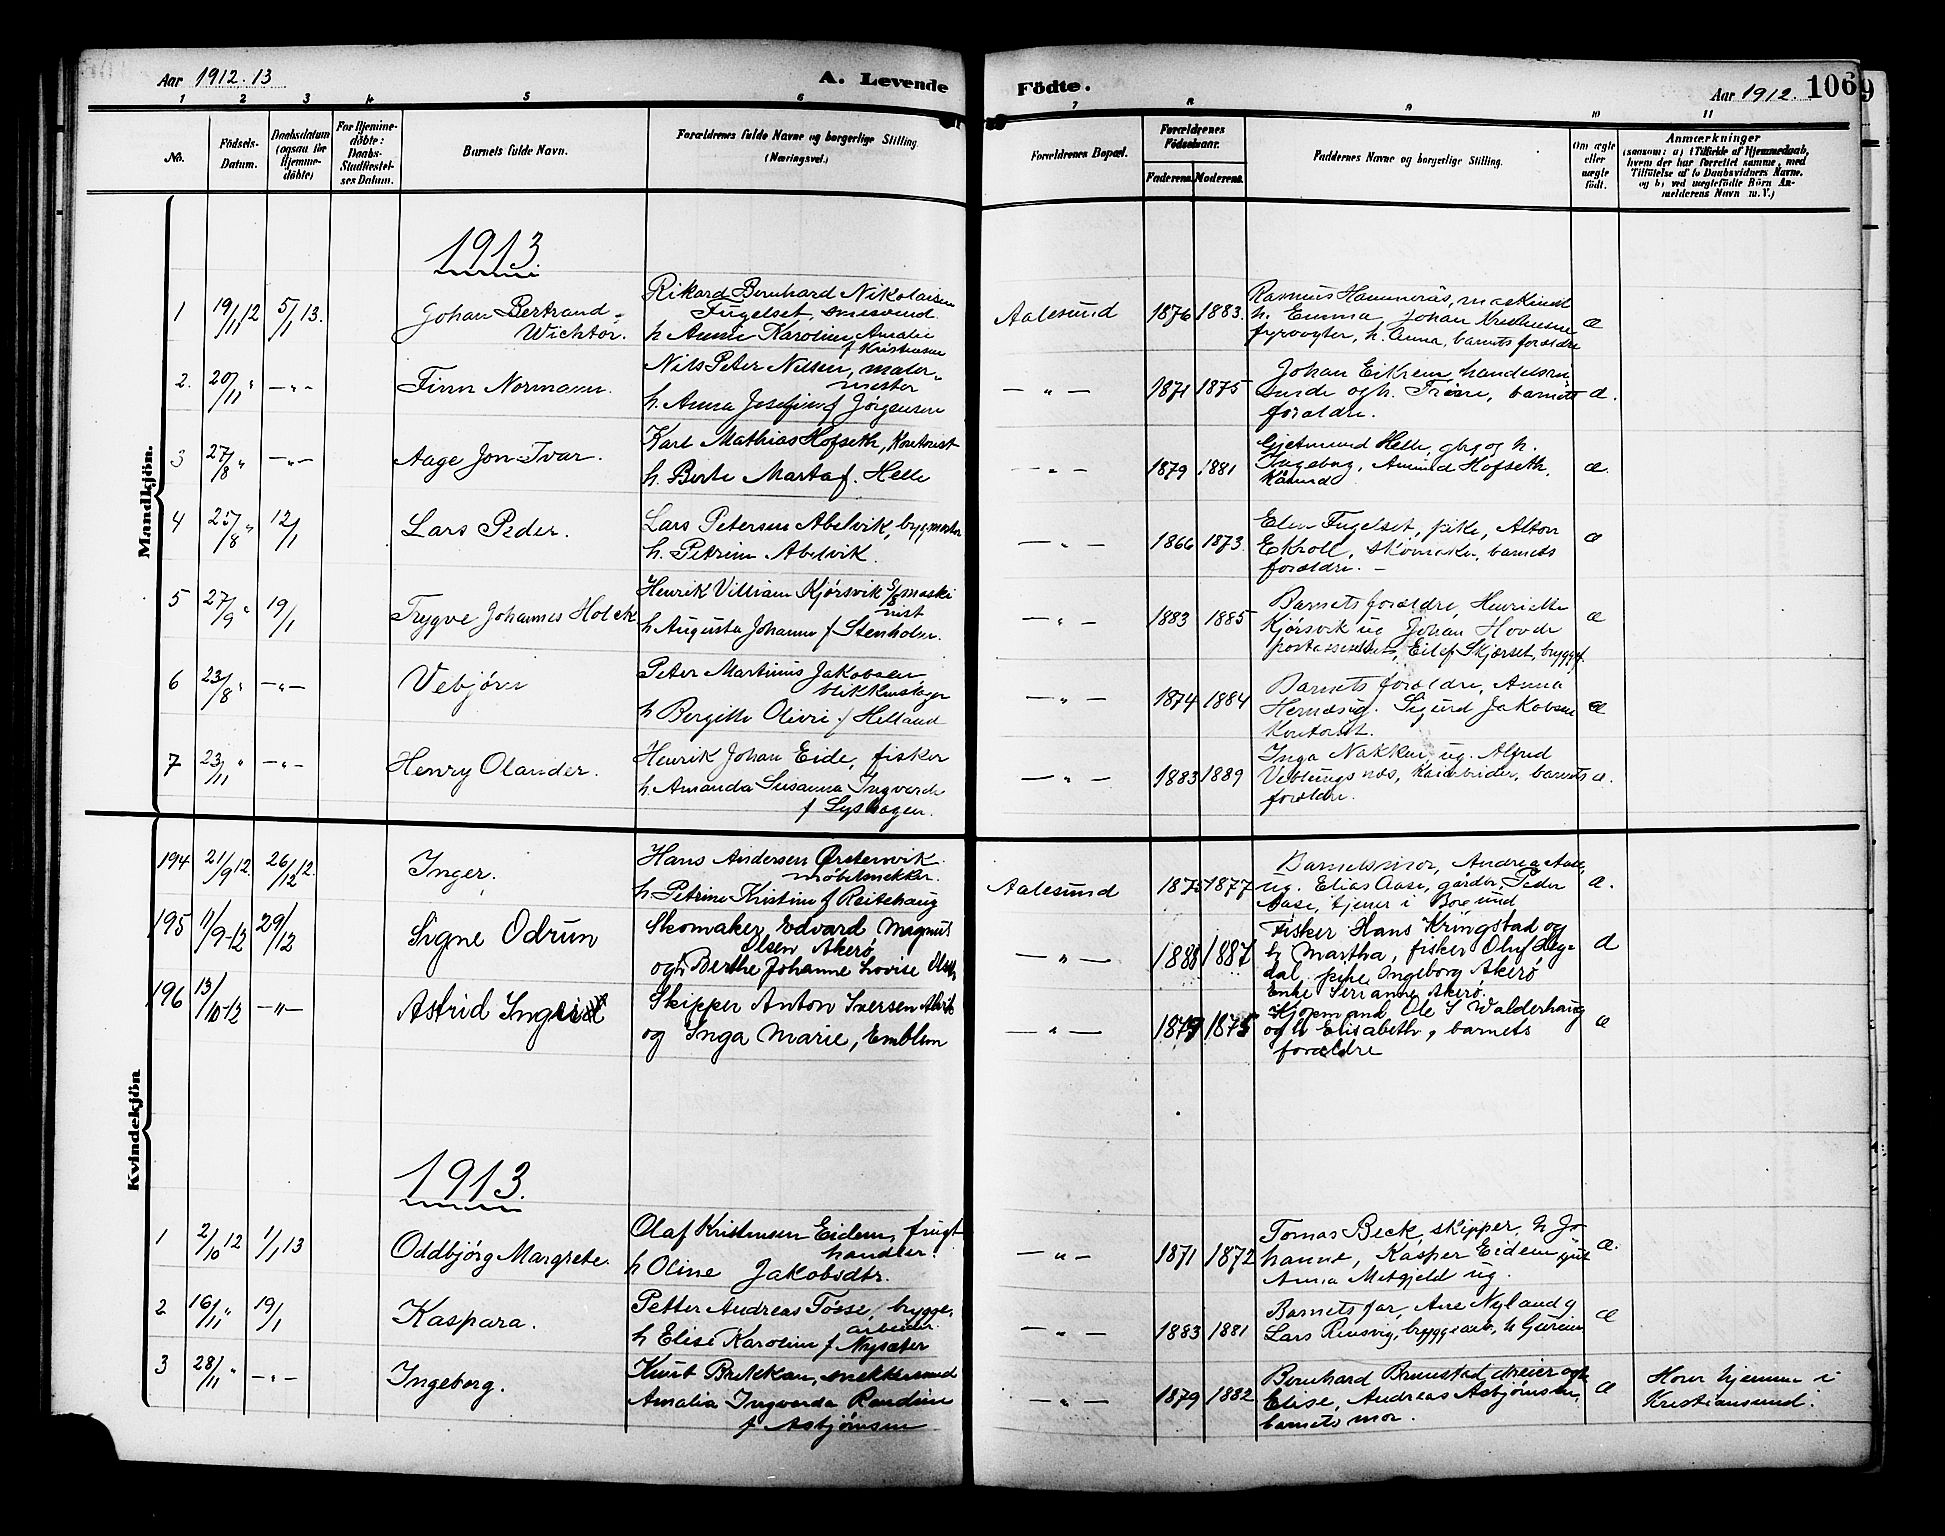 Aar 1912.13
A. Levende
Födte.
Aar 1912.
106
9
1 2 3 4 5 6 7 8 9 10 11
No.
Födsels-Datum.
Daabsdatum (ogsaa for Hjemmedöbte)
For Hjemmedöbte: Daabs-Stadfæstelses Datum.
Barnets fulde Navn.
Forældrenes fulde Navne og borgerlige Stilling
(Næringsvei.)
Forældrenes Bopæl.
Forældrenes Födselsaar.
Faderens. Moderens.
Faddernes Navne og borgerlig Stilling.
Om ægte eller uægte födt.
Anmærkninger
(saasom: a) i Tilfælde af Hjemmedaab, hvem der har forrettet samme, med Tilföielse af to Daabsvidners Navne. og b) ved uægtefödte Börn Anmelderens Navn m. V.)
Mandkjön.
1913
1 19/11 12 5/1 13. Johan Bertrand Wichtor.
Rikard Bernhard Nikolaisen
Fugelset, smesvend
h. Anna Karoline Amalie
f Kristensen
Aalesund 1876 1883.
Rasmus Hammerås, maskinist
h. Emma, Johan Kristensen
fyrvogter, h. Anna, barnets forældre
æ
2. 20/11 " —"— Finn Normann.
Nils Peter Nilsen, maler-
mester
h. Anna Josefine f Jørgensen
— " — 1871 1875
Johan Eikrem handelsrei
sende og h. Trine, barnets
forældre.
æ.
3 27/8 " —"— Aage Jon Ivar.
Karl Mathias Hofseth, kontorist
h. Berte Marta f. Helle
— " — 1879 1881
Gjetmund Helle, gbr og h.
Ingeborg, Amund Hofseth,
æ.
4 25/8 " 12/1 Lars Peder.
Lars Petersen Abelvik, bygmester
h. Petrine Abelvik.
— " — 1866 1873.
Elen Fugelset, pike, Alton
Ekroll, skomaker, barnets
forældre. —
æ
5 27/9 " 19/1 Trygve Johannes Holck
Henrik Villiam Kjørsvik S/B maski
nist
h Augusta Johanne f Stenholm.
— " — 1883 1885
Barnets forældre, Henriette
Kjørsvik ug Johan Hovde
postassistent, Eilef Skjærset, brygge
æ
6 23/8 " —"— Vebjørn
Peter Martinus Jakobsen,
blikkenslager
h Bergitte Olivie f Helland
— " — 1874 1884
Barnets forældre, Anna
Sigurd Jakobsen
kontorist.
æ
7 23/11 " —"— Henry Olander.
Henrik Johan Eide, fisker
h. Amanda Susanna Ingvarda
f Lyshagen.
— " — 1883 1889
Inga Nakken, ug. Alfred
Veblungsnæs, kaiarbeider, barnets
forældre.
æ.
Kvindekjön
194 21/9 12 26/12 12 Inger.
Hans Andersen Ørstenvik
møbelsnekker.
h Petrine Kristine f Reitehaug
Aalesund 1875 1877
Barnetsmor, Andrea Aase,
ug. Elias Aase, gårdbr, Peder
Aase, tjener i Borgund
æ.
195 11/9-12 29/12 Signe Odrun
Skomaker Edvard Magnus
Olsen Akerø
og h Berthe Johanne Lovise Olsdtr
— " — 1888 1887
Fisker Hans Kringstad og
h Martha, fisker Oluf Heg-
dal, pike Ingeborg Akerø
Enke Serianne Akerø.
æ
196 13/10-12 —"— Astrid
Skipper Anton Iversen
og Inga Marie, Emblem
— " — 1875
Kjøpmand Ole S Walderhaug
og h Elisabeth, barnets
forældre
æ
1913.
1 2/10 12 1/1 13 Oddbjørg Margrete.
Olaf Kristensen Eidem, frugt
handler.
h Oline Jakobsdtr.
— " — 1871 1872
Tomas Beck, skipper, h Jo
hanne, Kasper Eidem gut
Anna Metgjeld ug.
æ.
2 16/11 " 19/1 Kaspara.
Petter Andreas Tøsse, brygge
arbeider.
h Elise Karoline f Nysæter
— " — 1883 1881
Barnets far, Ane Nyland g
Lars Rensvig, bryggearb, h Gurine
æ
3 28/11 " —"— Ingeborg.
Knut Brekkan, snekkersvend
Amalia Ingvarda Randine
f Asbjørnsen
— " — 1879 1882
Bernhard Brunstad, dreier og h
Elise, Andreas Asbjørnsen,
barnets mor.
æ
Hører hjemme i
Kristiansund.